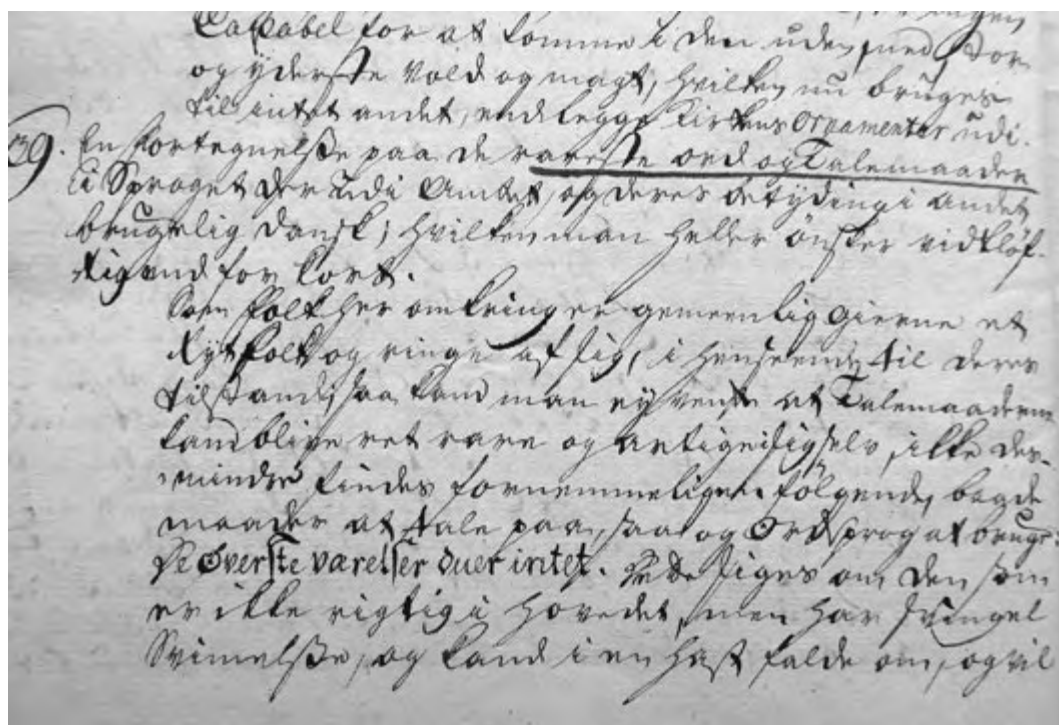 Capabel for at komme i den uden med stor
og yderste Vold og magt, hvilken nu bruges
til intet andet, end legge Kirkens Ornamenter udi.
39. En Fortegnelße paa de rareste ord og Talemaader
i Sproget der udi Amtet, og deres betyding i andet
brugelig Dansk; hvilken man heller ønsker vidtløf-
tig end for kort.
Som Folk her omkring er gemeenlig gierne et
folk og ringe af sig, i henseende til deres
tilstand, saa kand man ey vente at Talemaaderne
kand blive ret rare og artige i sig selv, ikke des-
mindre findes fornemmeligen følgende, begge
maader at tale paa, saa og Ordsprog at bruge:
De Øverste værelser duer intet. siges om den som
er ikke rigtig i Hovedet, men har Svingel
Svimelße, og kand i en hast falde om, og vil